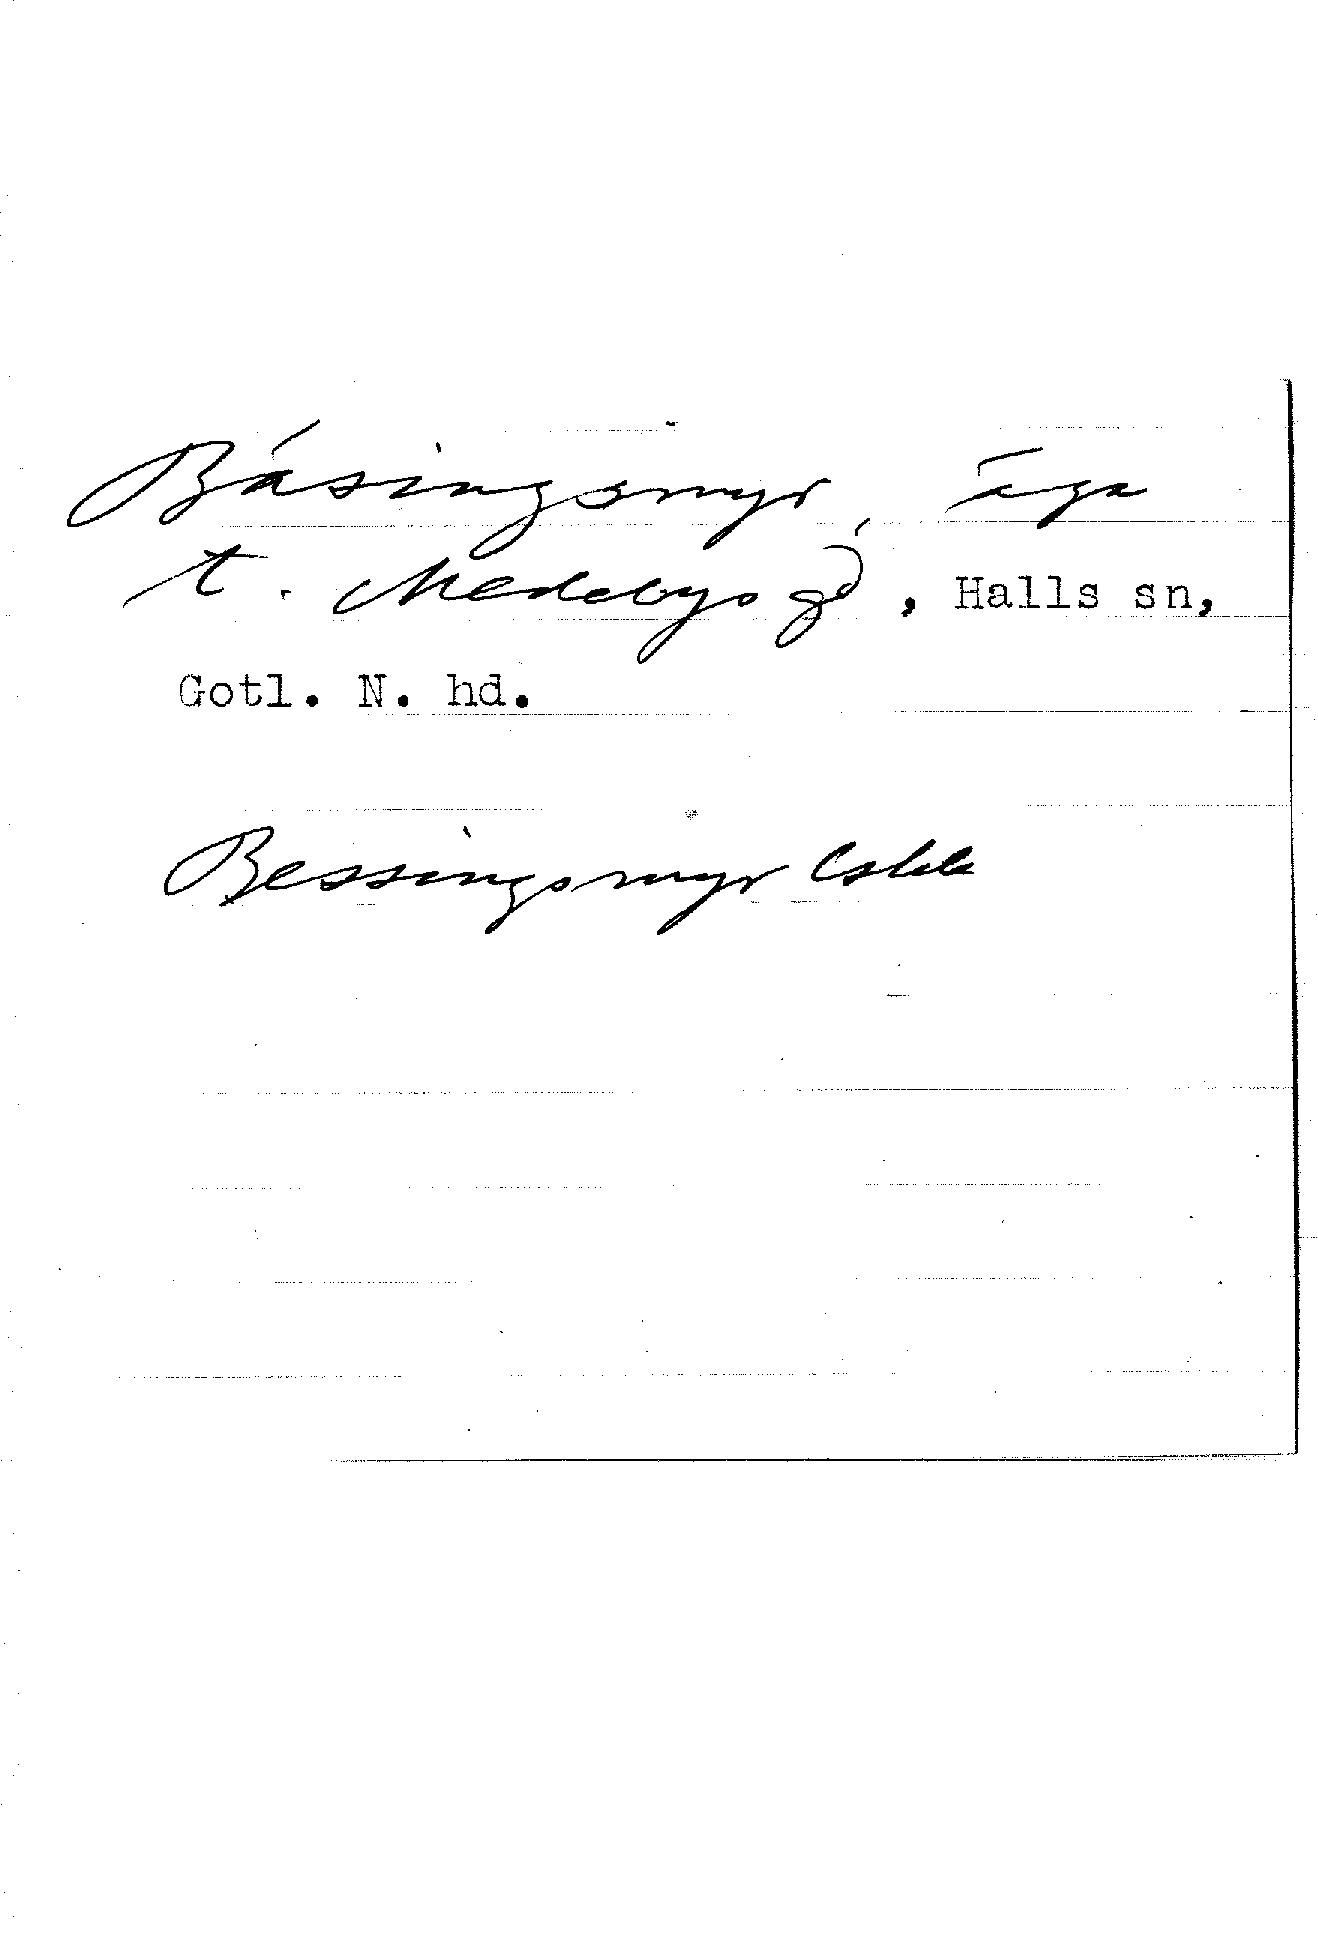 Bäsingsmyr, äga
t. Medebys gd, Halls sn,
Gotl. N. hd.
Bessingsmyr